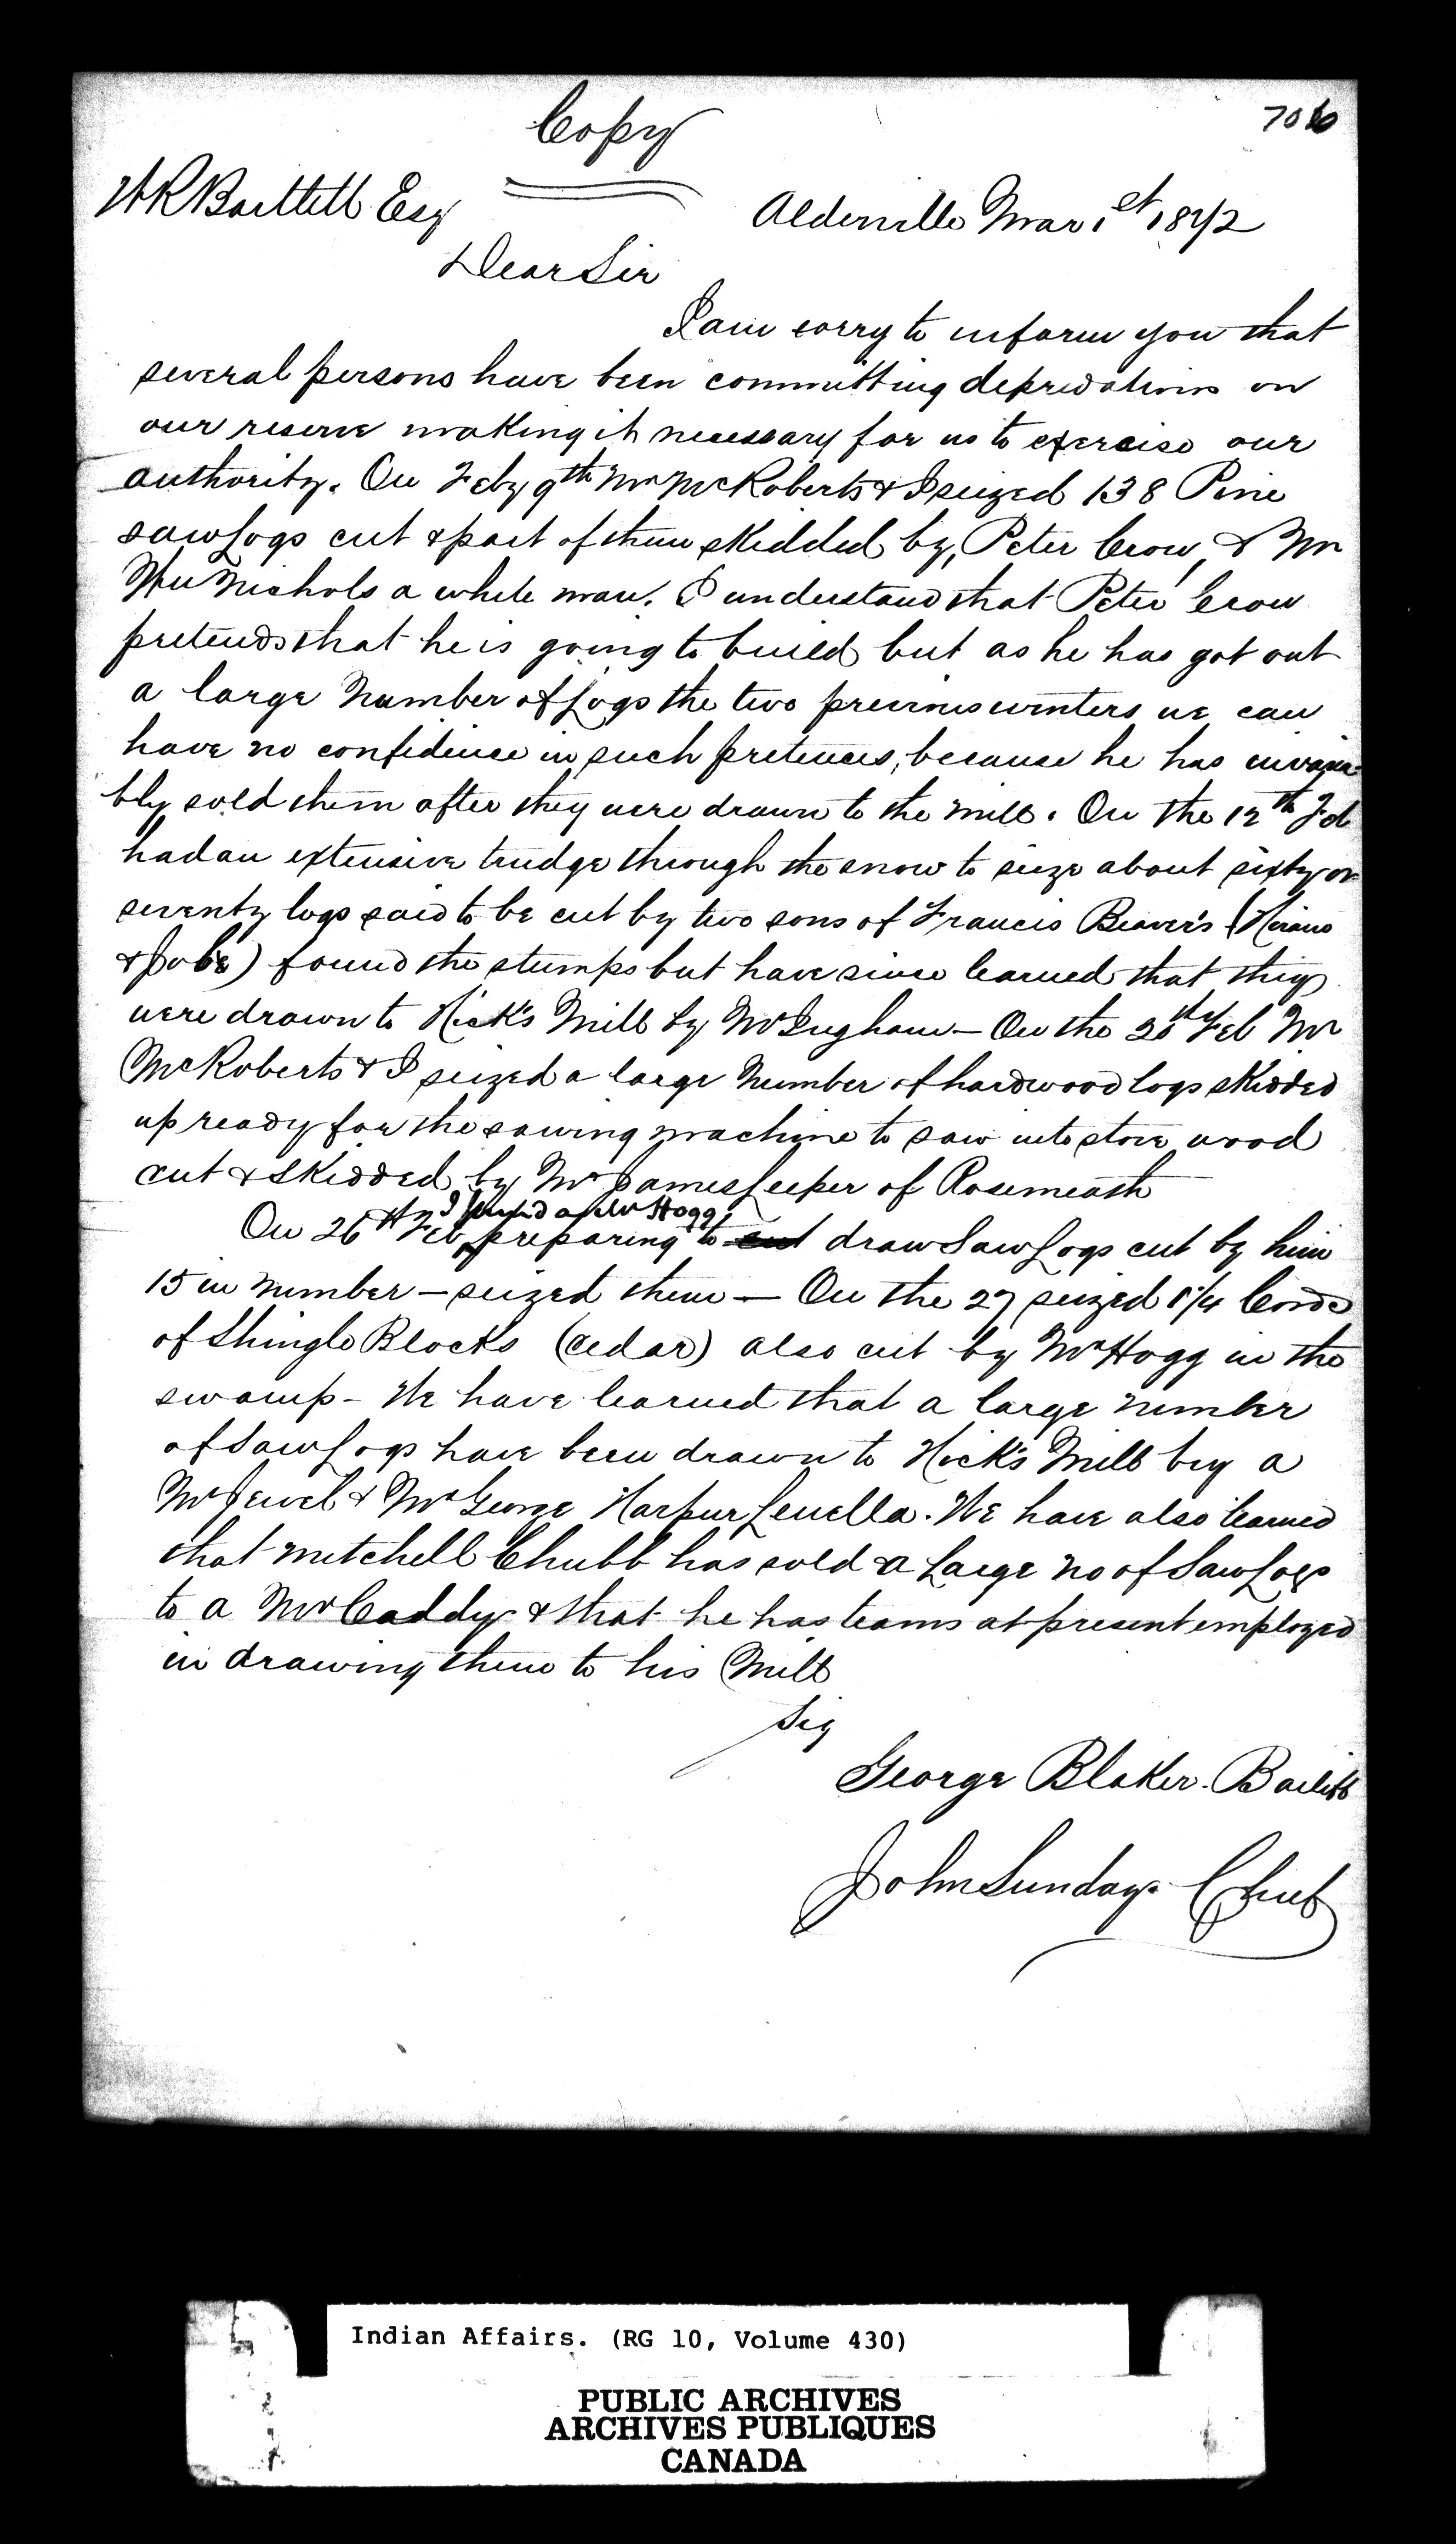 Copy
706
W R Bartlett Esq
Alderville Mar 1st 1872
Dear Sir
I am sorry to inform you that
several persons have been committing depredations on
our reserve making it necessary for us to exercise our
authority. On Feby 9th Mr McRoberts & I seized 138 Pine
saw Logs cut & part of them skidded by, Peter Crow, & Mr
Wm Nichols a white man. I understand that Peter Crow
pretends that he is going to build but as he has got out
a large Number of Logs the two previous winters we can
have no confidence in such pretences, because he has invaria-
bly sold them after they were drawn to the mill. On the 12th Feb
had an extensive trudge through the snow to seize about sixty or
seventy logs said to be cut by two sons of Francis Beaver's (Hiram
& Jobe) found the stumps but have since learned that they
were drawn to Hick's Mill by Mr Ingham - On the 20th Feb Mr
McRoberts & I seized a large Number of hardwood logs skidded
up ready for the sawing machine to saw into stove wood
cut & skidded by Mr James Leeper of Roseneath
I found a Mr Hogg
On 26th Feb preparing to cut draw Saw Logs cut by him
15 in number - seized them - On the 27 seized 1 1/4 Cords
of Shingle Blocks (cedar) also cut by Mr Hogg in the
swamp - We have learned that a large number
of Saw Logs have been drawn to Hick's Mill by a
Mr Jewel & Mr George Harpur Lenella. We have also learned
that Mitchell Chubb has sold a Large no of Saw Logs
to a Mr Caddy & that he has teams at present employed
in drawing them to his Mill
Sig
George Blaker. Bailiff
John Sunday. Chief
Indian Affairs. (RG 10, Volume 430)
PUBLIC ARCHIVES
ARCHIVES PUBLIQUES
CANADA